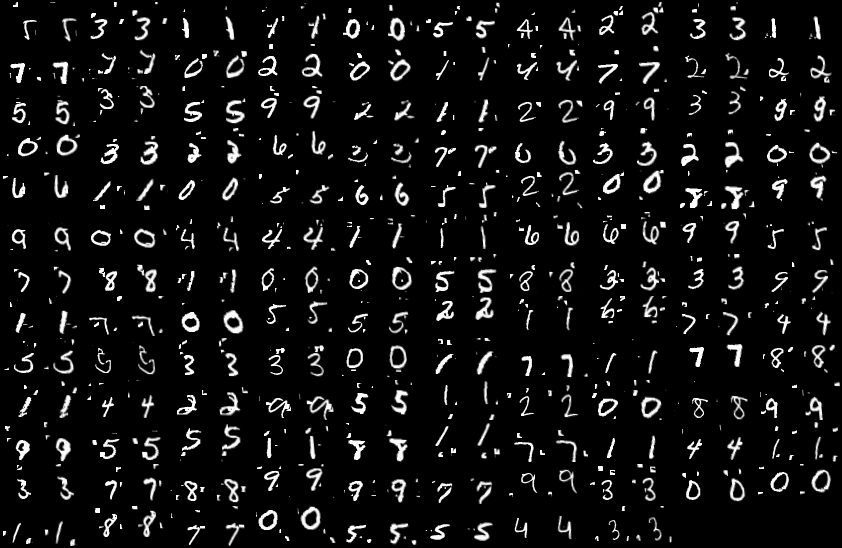 5 5 3 3 1 1 1 1 0 0 5 5 4 4 2 2 3 3 1 1
7 7 7 7 0 0 2 2 0 0 1 1 4 4 7 7 2 2 2 2
5 5 3 3 5 5 9 9 2 2 1 1 2 2 9 9 3 3 9 9
0 0 3 3 2 2 6 6 3 3 7 7 0 0 3 3 2 2 0 0
6 6 1 1 0 0 5 5 6 6 5 5 2 2 0 0 8 8 9 9
9 9 0 0 4 4 4 4 1 1 1 1 6 6 6 6 9 9 5 5
7 7 8 8 1 1 0 0 0 0 5 5 8 8 3 3 3 3 9 9
1 1 7 7 0 0 5 5 5 5 2 2 1 1 7 7 4 4
5 5 3 3 3 3 0 0 1 1 7 7 1 1 7 7 8 8
1 1 4 4 2 2 9 9 5 5 1 1 2 2 0 0 8 8 9 9
9 9 5 5 5 5 1 1 8 8 1 1 7 7 1 1 4 4 1 1
3 3 7 7 8 8 9 9 9 9 7 7 9 9 3 3 0 0 0 0
1 1 8 8 7 7 0 0 5 5 5 5 4 4 3 3